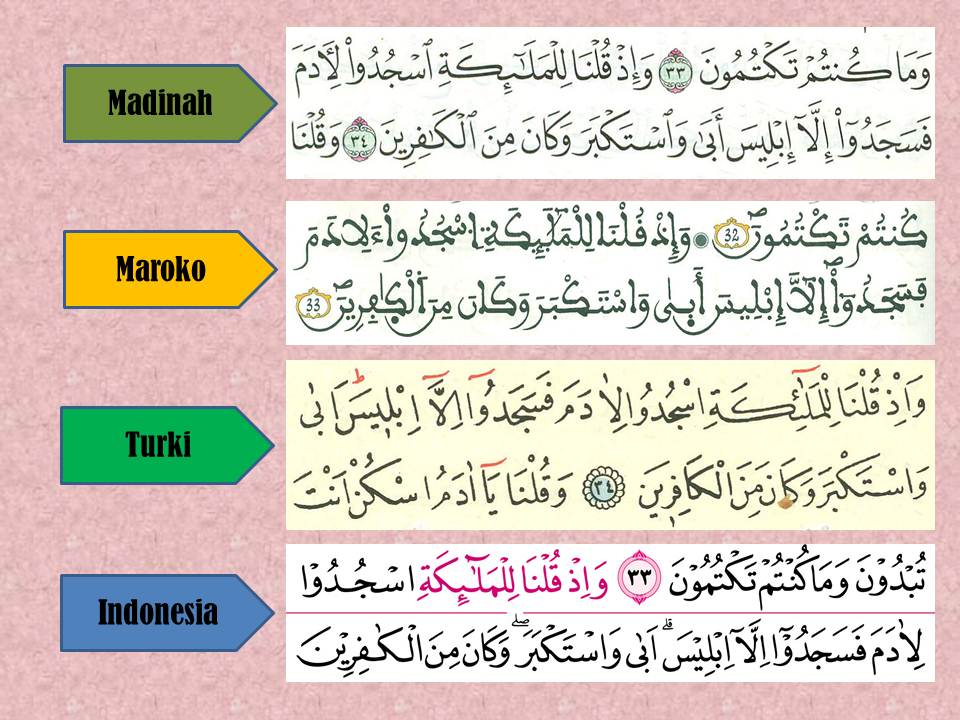 Madinah
وَمَا كُنتُمْ تَكْتُمُونَ ٣٣ وَإِذْ قُلْنَا لِلْمَلَٰٓئِكَةِ ٱسْجُدُوا۟ لِـَٔادَمَ
فَسَجَدُوٓا۟ إِلَّآ إِبْلِيسَ أَبَىٰ وَٱسْتَكْبَرَ وَكَانَ مِنَ ٱلْكَٰفِرِينَ ٣٤ وَقُلْنَا
Maroko
كُنتُمْ تَكْتُمُونَ 32 وَإِذْ قُلْنَا لِلْمَلَٰٓئِكَةِ اِ۟سْجُدُوا۟ ءَلِادَمَ
فَسَجَدُوٓا۟ إِلَّآ إِبْلِيسَ أَبٜىٰ وَاسْتَكْبَرَ وَكَانَ مِنَ اَ۬لْكٰ۪فِرِينَ 33
Turki
وَاِذْ قُلْنَا لِلْمَلٰٓئِكَةِ اسْجُدُوا لِاٰدَمَ فَسَجَدُٓوا اِلَّٓا اِبْل۪يسَۜ اَبٰى
وَاسْتَكْبَرَ وَكَانَ مِنَ الْكَافِر۪ينَ ٣٤ وَقُلْنَا يَٓا اٰدَمُ اسْكُنْ اَنْتَ
Indonesia
تُبْدُوْنَ وَمَا كُنْتُمْ تَكْتُمُوْنَ ٣٣ وَاِذْ قُلْنَا لِلْمَلٰۤىِٕكَةِ اسْجُدُوْا
لِاٰدَمَ فَسَجَدُوْٓا اِلَّآ اِبْلِيْسَۗ اَبٰى وَاسْتَكْبَرَۖ وَكَانَ مِنَ الْكٰفِرِيْنَ